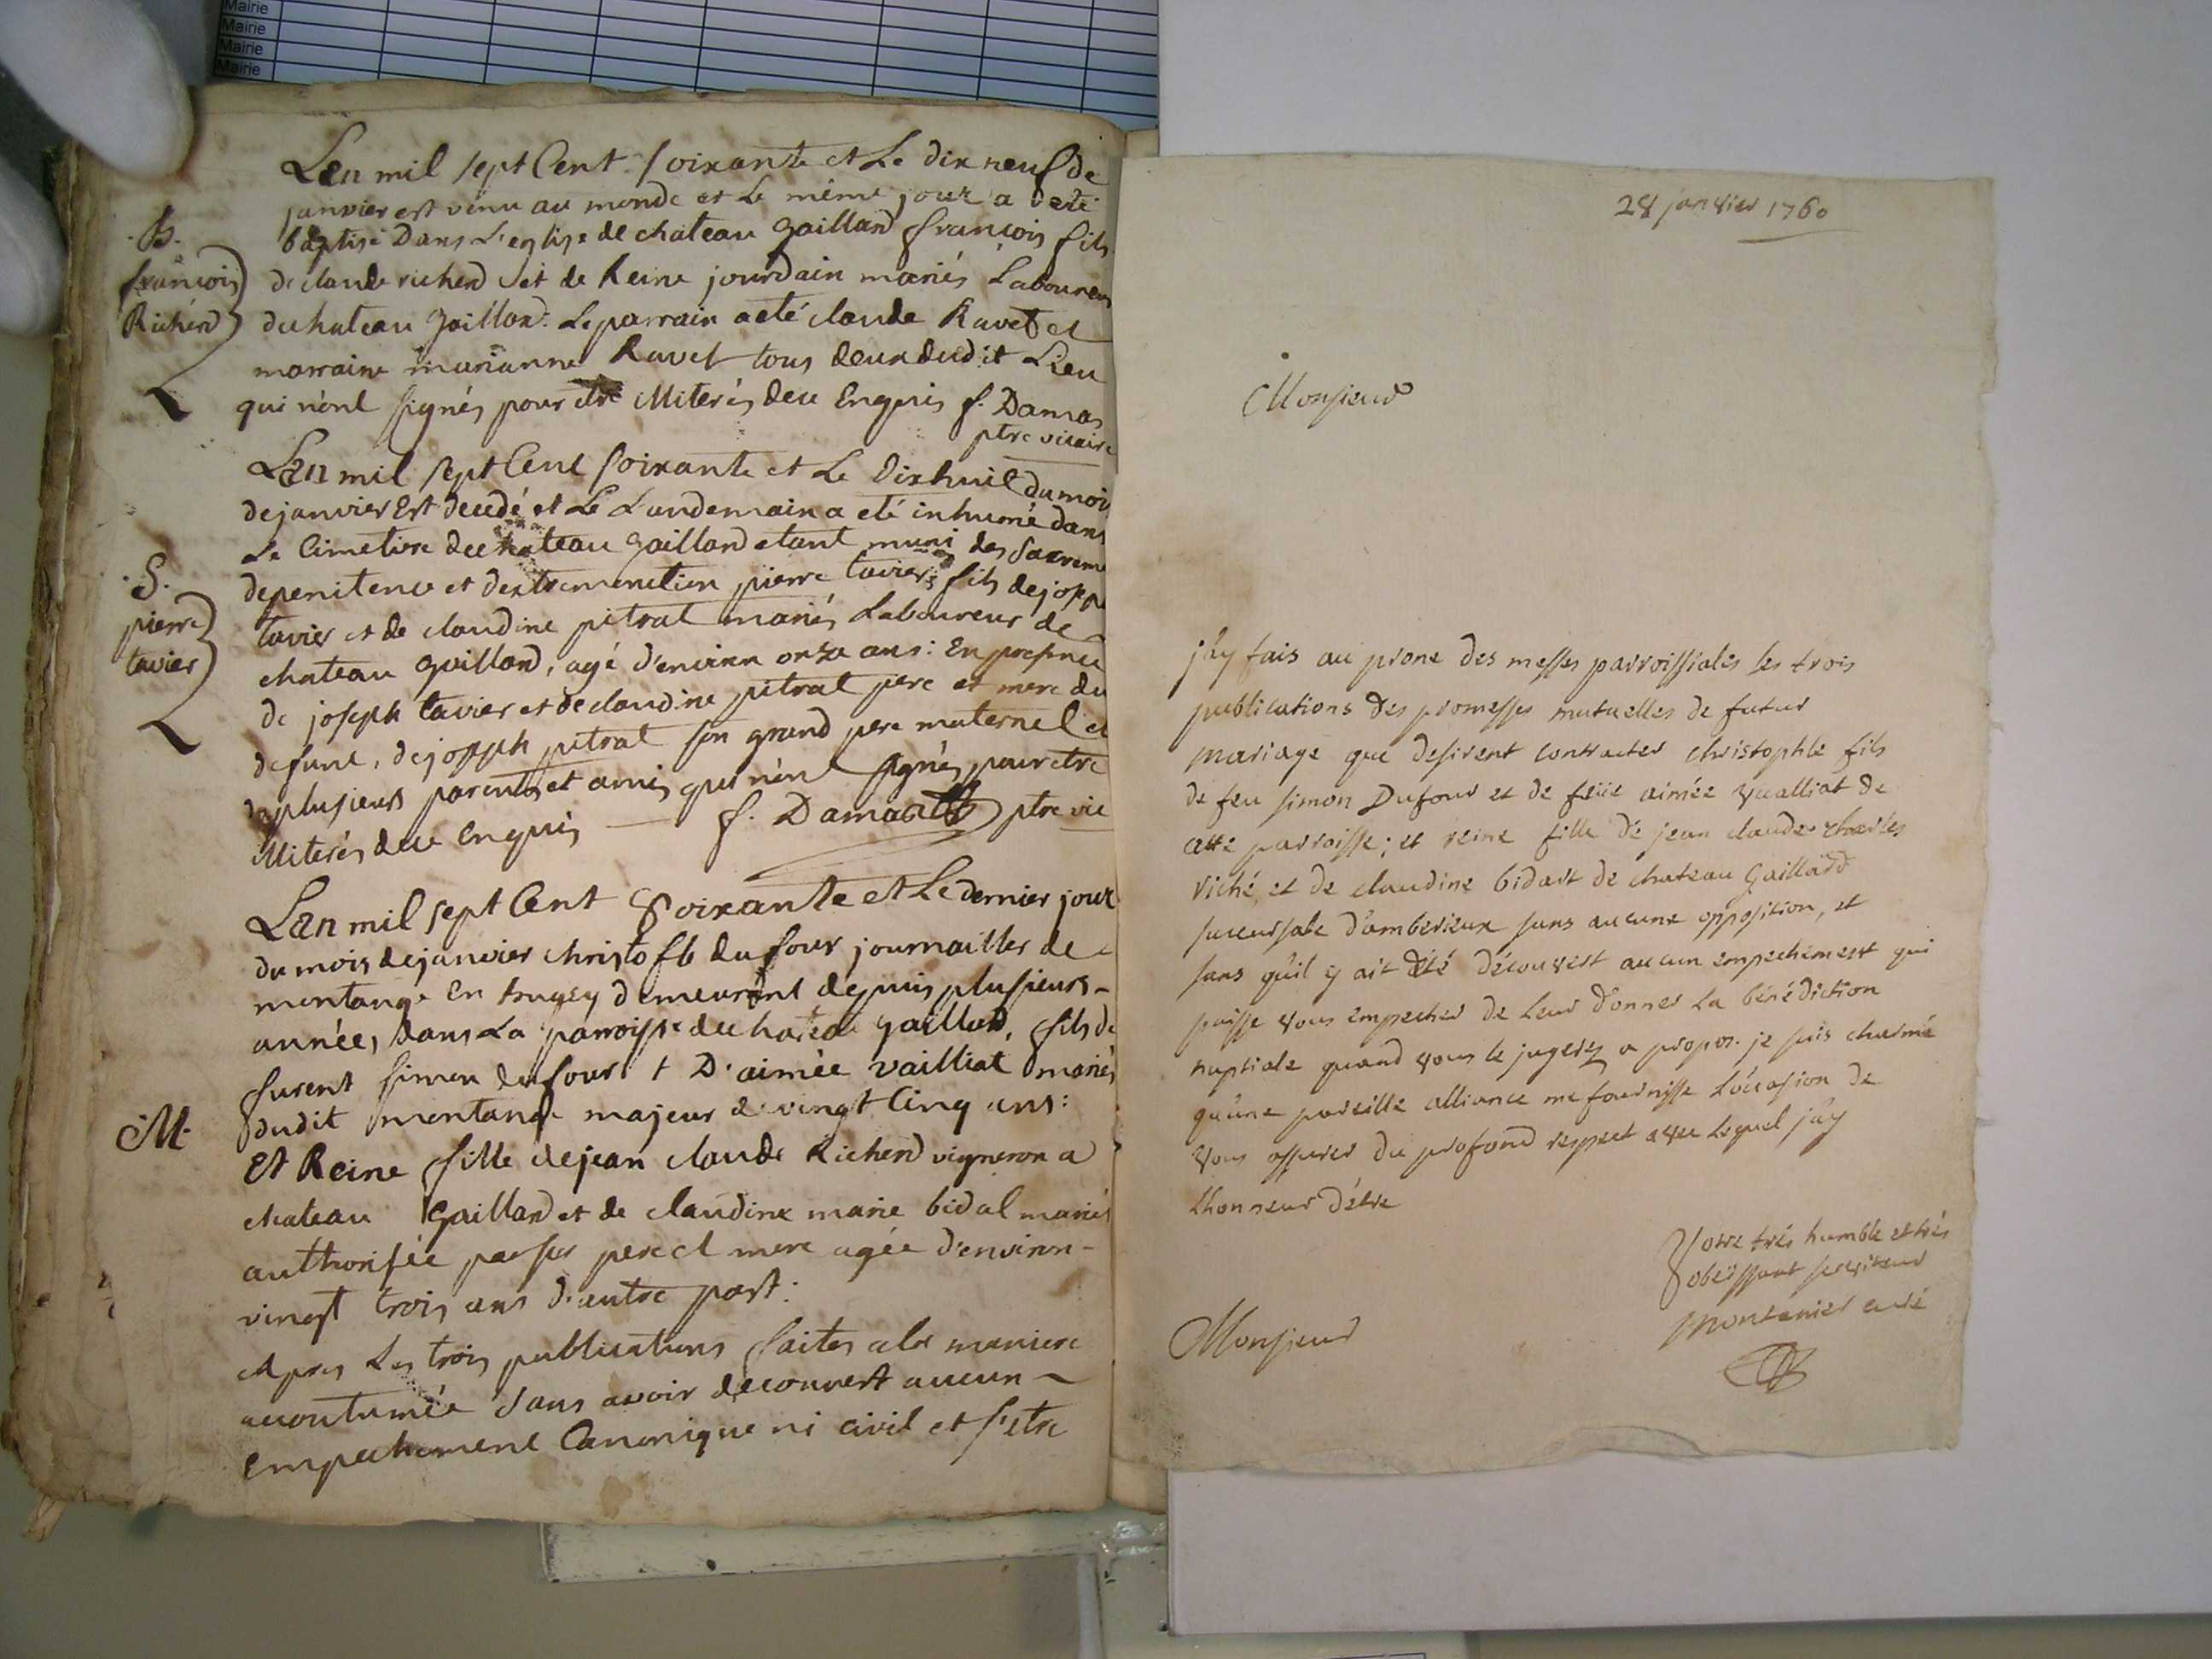 Mairie
Mairie
Mairie
Mairie
Lan mil sept Cent soixante et Le dix neuf de
janvier est venu au monde et Le même jour a eté
baptisé Dans L'eglise de chateau gaillard françois fils
de claude richerd et de Reine jourdain mariés Laboureurs
du chateau gaillard. Le parrain a eté claude Ravet et
marraine marianne Ravet tous deux dudit Lieu
qui n'ont signés pour etre illiterés deu Enquis f. Damas
ptre vicaire
.B.
françois
Richerd
Lan mil sept Cent soixante et Le Dixhuit du mois
de janvier Est decedé et Le Landemain a eté inhumé dans
Le Cimetiere du chateau gaillard etant muni des Sacreme
de penitence et dextremonction pierre tavier fils de joseph
tavier et de claudine pitrat mariés Laboureur de
chateau gaillard, agé d'environ onze ans: En presence
de joseph tavier et de claudine pitrat pere et mere du
defunt, de joseph pitrat son grand pere maternel et
de plusieurs parents et amis qui n'ont signés pour etre
illiterés deu Enquis — f. Damas ptre vic
.S.
pierre
tavier
Lan mil sept Cent Soixante et Le dernier jour
du mois de janvier christofle du four journailler de
montange En bugey demeurant depuis plusieurs
années dans La parroisse du chateau gaillard, fils de
furent simon du four et D'aimée vailliat mariés
dudit montange majeur de vingt Cinq ans:
Et Reine fille de jean claude Richerd vigneron a
chateau gaillard et de claudine marie bidal mariés
authorisée par ses pere et mere agée d'environ
vingt trois ans d'autre part:
Apres Les trois publications faites a la maniere
acoutumée Sans avoir decouvert aucun
empechement Canonique ni civil et s'etre
M.
28 janvier 1760
Monsieur
j'ay fais au prone des messes parroissiales les trois
publications des promesses mutuelles de futur
mariage que desirent contracter christophle fils
de feu simon Dufour et de feüe aimée vualliat de
cette parroisse; et reine fille de jean claude charles
riché, et de claudine bidart de chateau Gaillard
succursale d'amberieux sans aucune opposition, et
sans qu'il y ait été découvert aucun empechement qui
puisse vous empecher de leur donner la bénédiction
nuptiale quand vous le jugerez a propos. je suis charmé
qu'une pareille alliance me fournisse l'occasion de
vous assurer du profond respect avec lequel j'ay
l'honneur d'être
Monsieur
Votre très humble et très
obeïssant serviteur
montanier curé